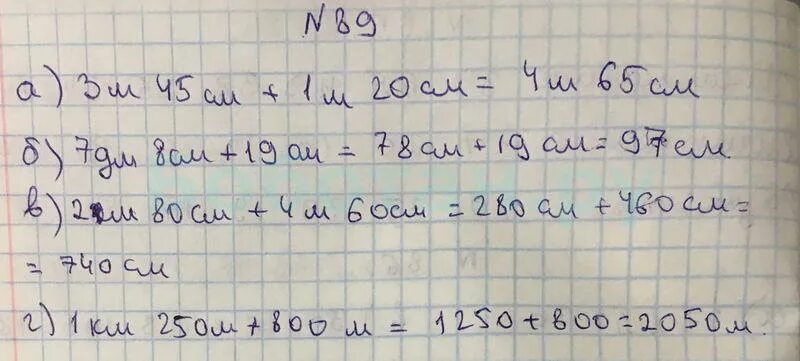 N 89
а) 3м 45см + 1м 20см = 4м 65см
б) 7дм 8см + 19см = 78см + 19см = 97см.
в) 2м 80см + 4м 60см = 280см + 460см =
= 740см
г) 1км 250м + 800м = 1250 + 800 = 2050м.